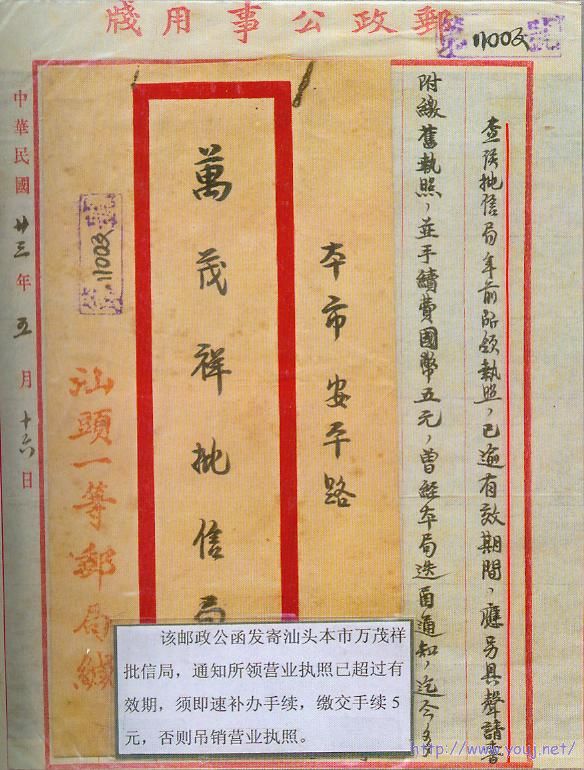 郵政公事用牋
查該批信局年前所領執照,已逾有效期間,應另具聲請書
附繳舊執照,並手續費國幣五元,曾經本局迭函通知,迄今多
本市安平路
萬茂祥批信局
汕頭一等郵局緘
中華民國廿三年五月十六日
该邮政公函发寄汕头本市万茂祥
批信局，通知所领营业执照已超过有
效期，须即速补办手续，缴交手续5
元，否则吊销营业执照。
http://www.youj.net/